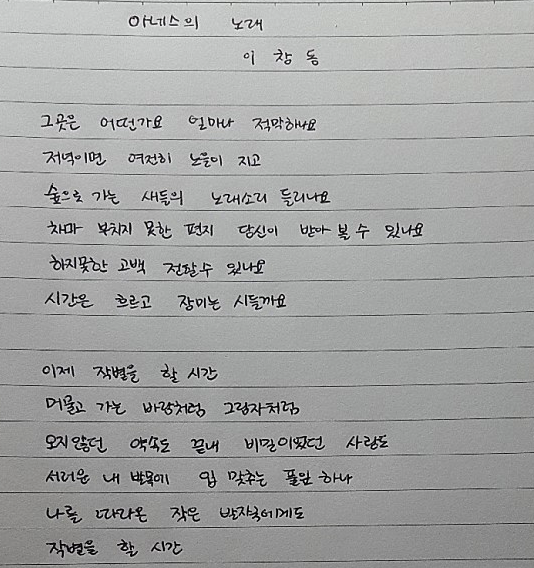 아네스의 노래
이 창 동
그곳은 어떤가요 얼마나 적막하나요
저녁이면 여전히 노을이 지고
숲으로 가는 새들의 노래소리 들리나요
차마 부치지 못한 편지 당신이 받아 볼 수 있나요
하지못한 고백 전할수 있나요
시간은 흐르고 장미는 시들까요
이제 작별을 할 시간
머물고 가는 바람처럼 그림자처럼
오지않던 약속도 끝내 비밀이었던 사랑도
서러운 내 발목에 입 맞추는 풀잎 하나
나를 따라온 작은 발자국에게도
작별을 할 시간